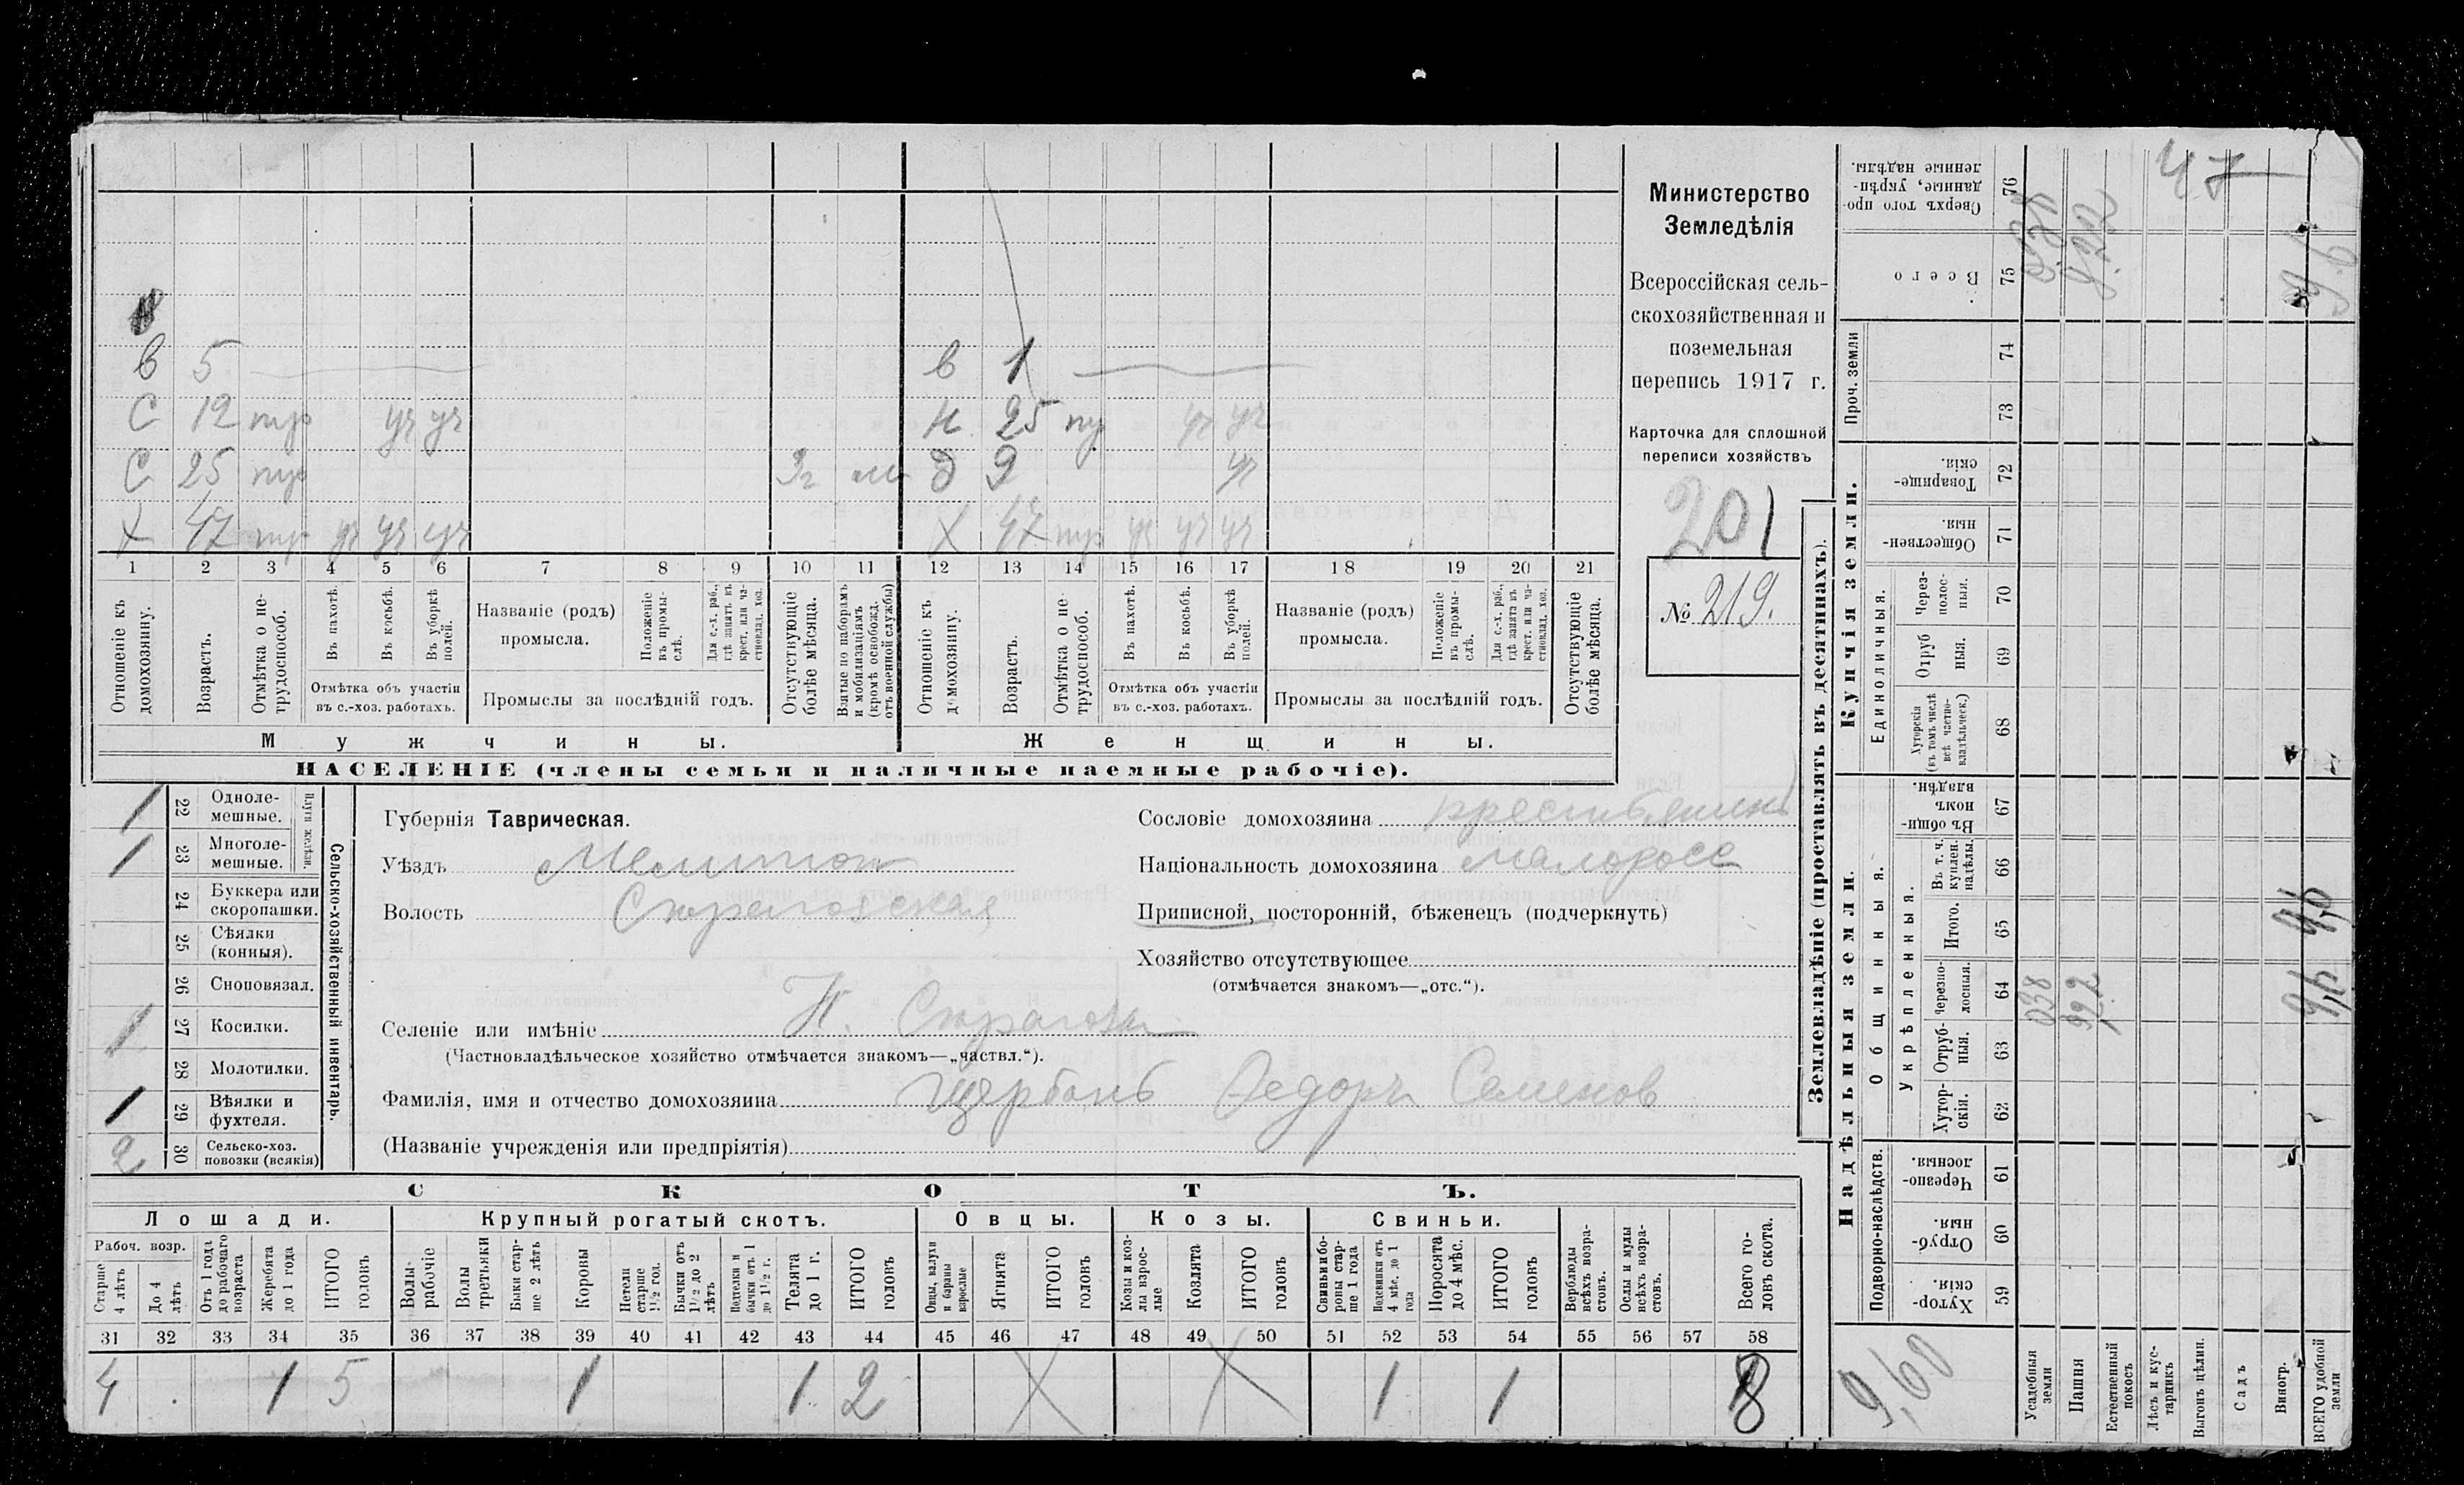 в 5 в 1
С 12 тур уч уч Н 25 ту уч уч
С 25 тур Зг Д 9 уч
Х 47 тур уч уч уч Х 47 тур уч уч уч
1 2 3 4 5 6 7 8 9 10 11 12 13 14 15 16 17 18 19 20 21
Отношеніе къ домохозяину.
Возрастъ.
Отмѣтка о нетрудоспособ.
Въ пахотѣ.
Въ косьбѣ.
Въ уборкѣ полей.
Отмѣтка объ участіи
въ с.-хоз. работахъ.
Названіе (родъ)
промысла.
Положеніе въ промыслѣ.
Для с.-х. раб., гдѣ занятъ въ крест. или частновлад. хоз.
Промыслы за послѣдній годъ.
Отсутствующіе болѣе мѣсяца.
Взятые по наборамъ и мобилизаціямъ (кромѣ освобожд. отъ военной службы)
Отношеніе къ домохозяину.
Возрастъ.
Отмѣтка о нетрудоспособ.
Въ пахотѣ.
Въ косьбѣ.
Въ уборкѣ полей.
Отмѣтка объ участіи
въ с.-хоз. работахъ.
Названіе (родъ)
промысла.
Положеніе въ промыслѣ.
Для с.-х. раб., гдѣ занята въ крест. или частновлад. хоз.
Промыслы за послѣдній годъ.
Отсутствующіе болѣе мѣсяца.
Мужчины. Женщины.
НАСЕЛЕНІЕ (члены семьи и наличные наемные рабочіе).
Министерство
Земледѣлія
Всероссійская сель-
скохозяйственная и
поземельная
перепись 1917 г.
Карточка для сплошной
переписи хозяйствъ
201
№ 219.
1 22 Одноле-
мешные.
1 23 Многоле-
мешные.
Плуги желѣзн.
24 Буккера или
скоропашки.
25 Сѣялки
(конныя).
26 Сноповязал.
1 27 Косилки.
28 Молотилки.
1 29 Вѣялки и
фухтеля.
2 30 Сельско-хоз.
повозки (всякія)
Сельско-хозяйственный инвентарь.
Губернія Таврическая.
Уѣздъ Мелитоп
Волость Строгоновская
Селеніе или имѣніе Н. Строгонов
(Частновладѣльческое хозяйство отмѣчается знакомъ—„частвл.“).
Фамилія, имя и отчество домохозяина Щербань Федоръ Семенов
(Названіе учрежденія или предпріятія)
Сословіе домохозяина крестьянинъ
Національность домохозяина малоросс
Приписной, посторонній, бѣженецъ (подчеркнуть)
Хозяйство отсутствующее
(отмѣчается знакомъ—„отс.“).
СКОТЪ.
Лошади. Крупный рогатый скотъ. Овцы. Козы. Свиньи.
Рабоч. возр.
Старше 4 лѣтъ
До 4 лѣтъ
Отъ 1 года до рабочаго возраста
Жеребята до 1 года
ИТОГО головъ
Волы рабочіе
Волы третьяки
Быки старше 2 лѣтъ
Коровы
Нетели старше 1½ год.
Бычки отъ 1½ до 2 лѣтъ
Подтелки и бычки отъ 1 до 1½ г.
Телята до 1 г.
ИТОГО головъ
Овцы, валухи и бараны взрослые
Ягнята
ИТОГО головъ
Козы и козлы взрослые
Козлята
ИТОГО головъ
Свиньи и боровы старше 1 года
Подсвинки отъ 4 мѣс. до 1 года
Поросята до 4 мѣс.
ИТОГО головъ
Верблюды всѣхъ возрастовъ.
Ослы и мулы всѣхъ возрастовъ.
Всего головъ скота.
31 32 33 34 35 36 37 38 39 40 41 42 43 44 45 46 47 48 49 50 51 52 53 54 55 56 57 58
4 1 5 1 1 2 1 1 8
Землевладѣніе (проставлять въ десятинахъ).
Надѣльныя земли. Купчія земли. Проч. земли
Подворно-наслѣдств.
Общинныя.
Укрѣпленныя.
Единоличныя.
Хуторскія 59
Отрубныя. 60
Черезполосныя. 61
Хуторскія. 62
Отрубныя. 63
Черезполосныя. 64
Итого. 65
Въ т. ч. куплен. надѣлы. 66
Въ общинномъ владѣн. 67
Хуторскія (въ томъ числѣ всѣ частновладѣльческ.) 68
Отрубныя. 69
Черезполосныя. 70
Общественныя. 71
Товарищескія. 72
73
74
Всего 75
Сверхъ того проданные, укрѣпленные надѣлы. 76
Усадебныя земли 038
Пашня 9,22
Естественный покосъ
Лѣсъ и кустарникъ
Выгонъ цѣлин.
Садъ
Виногр.
ВСЕГО удобной земли 9,6 9,6 9,6
9,60
47